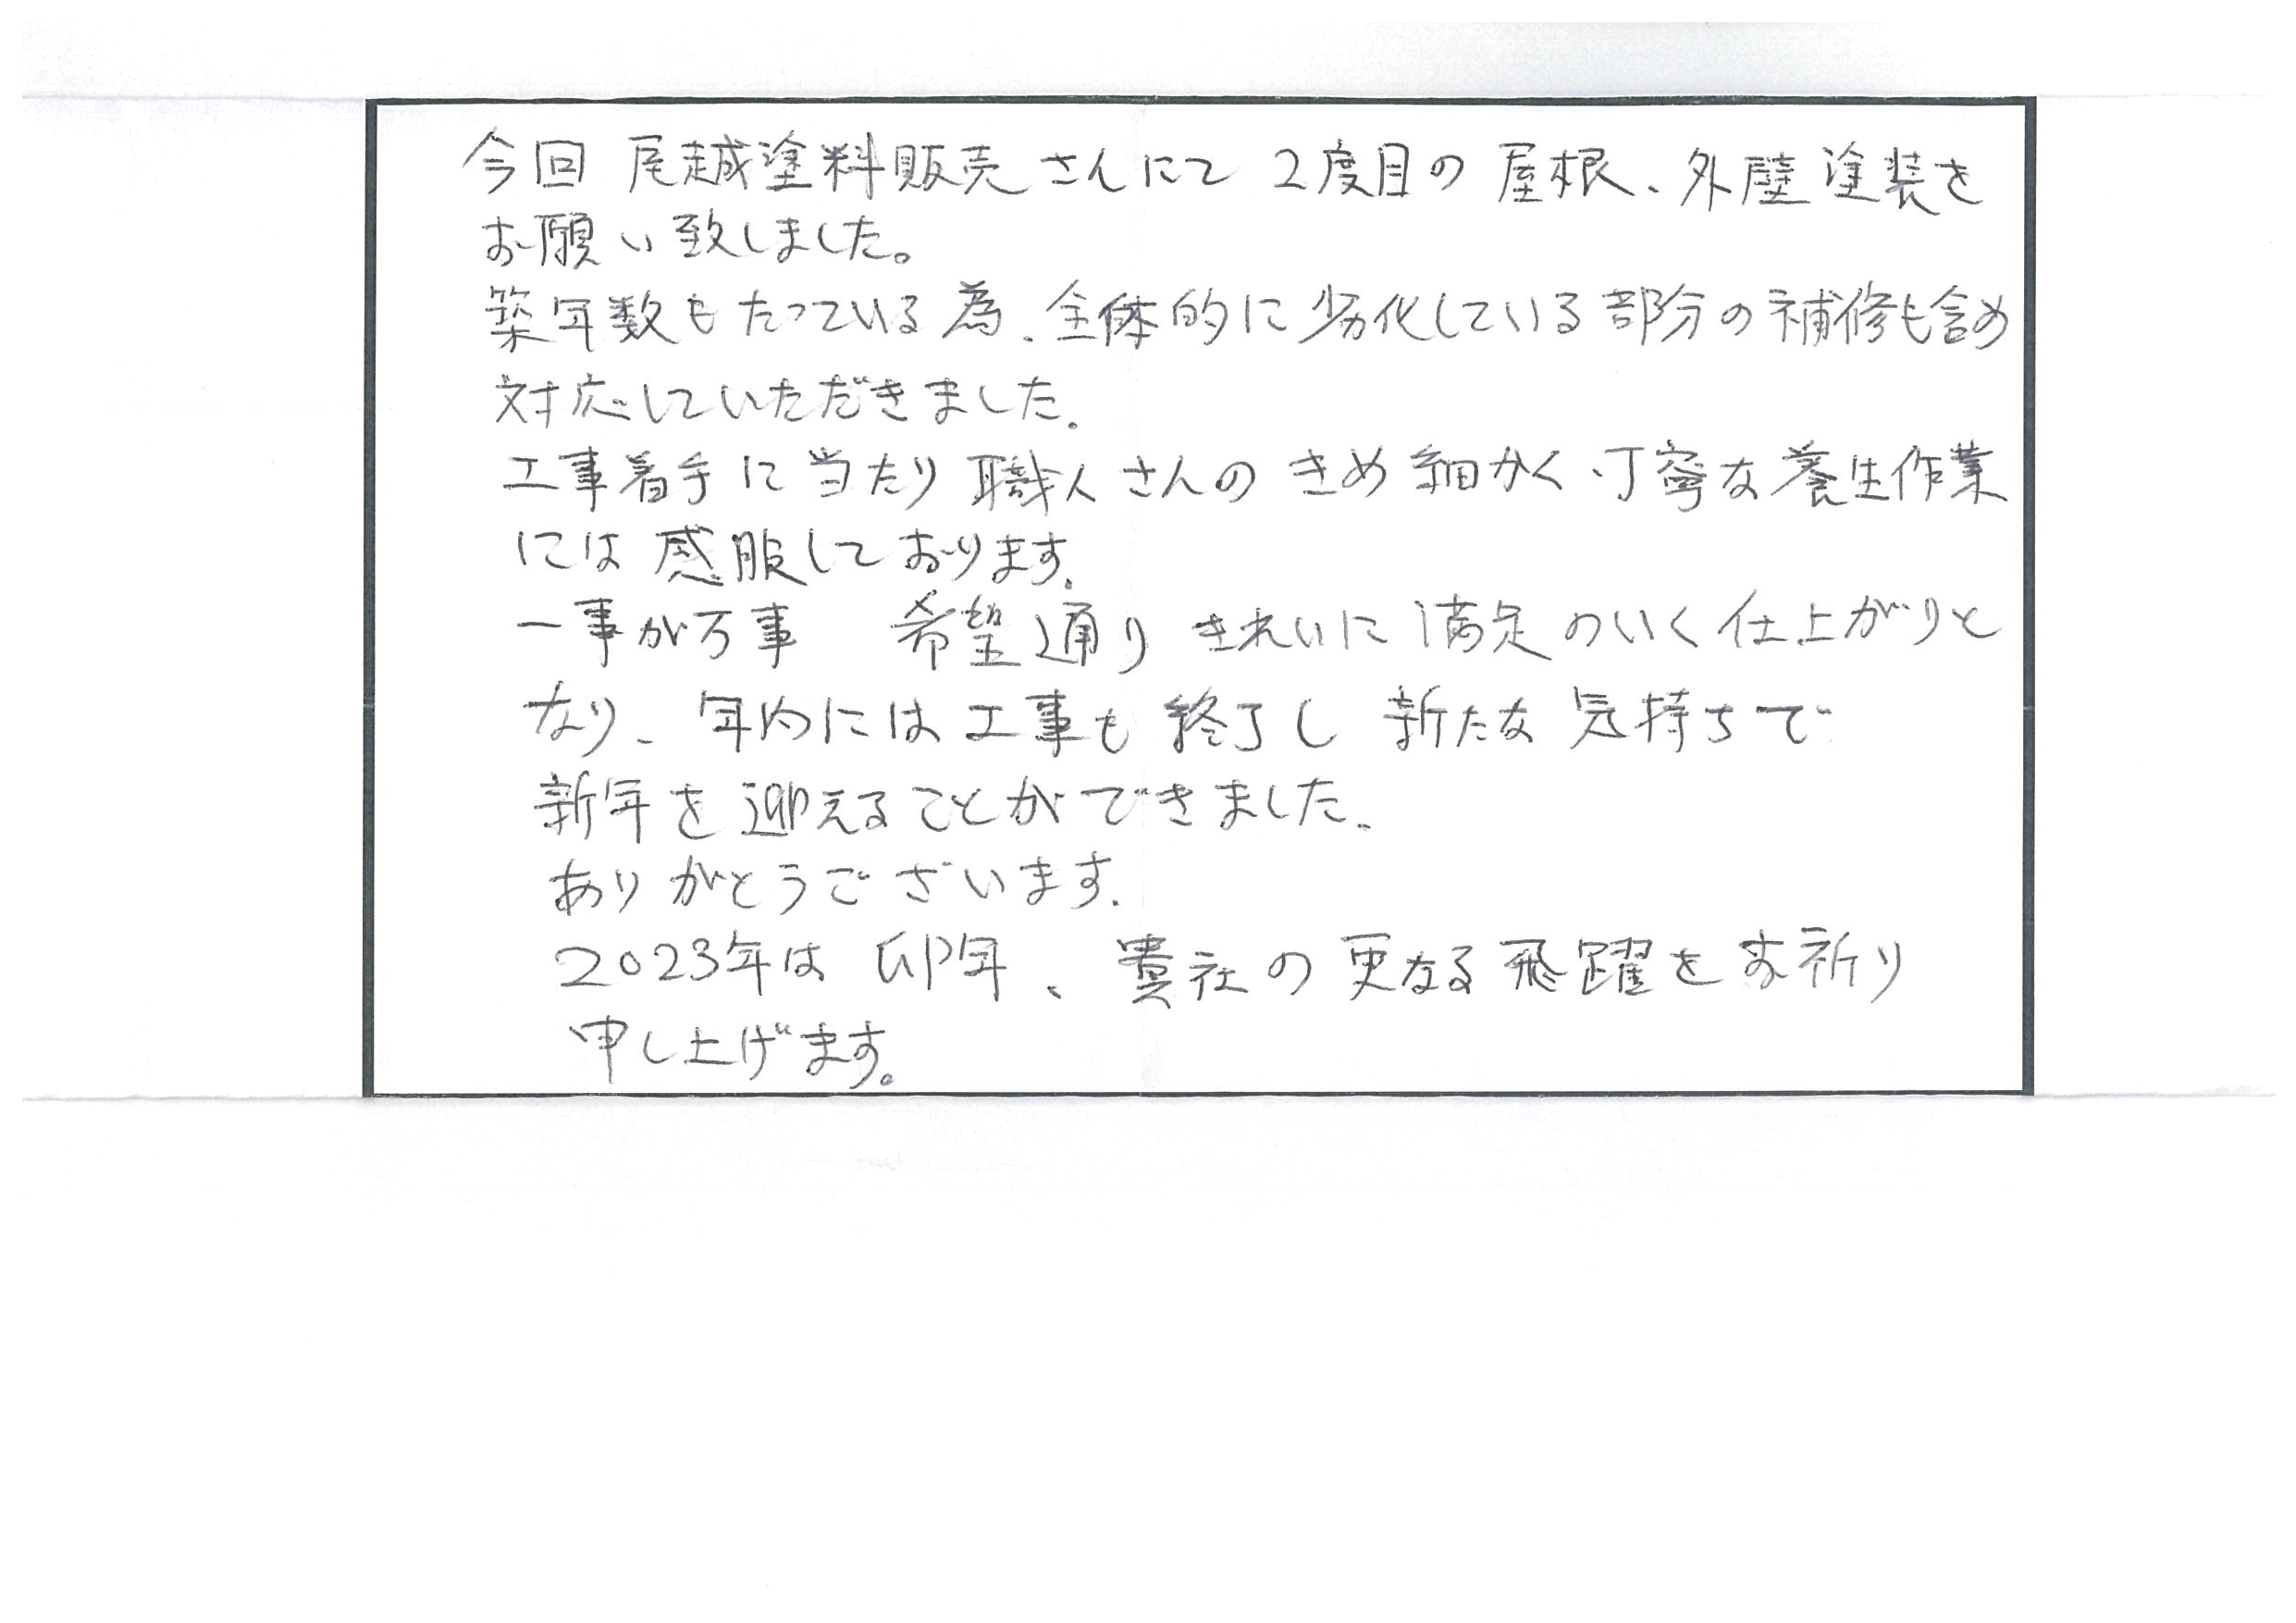 今回 尾越塗料販売さんにて 2度目の 屋根、外壁塗装を
お願い致しました。
築年数もたっている為、全体的に劣化している部分の補修も含め
対応していただきました。
工事着手に当たり職人さんのきめ細かく、丁寧な養生作業
には感服しております。
一事が万事　希望通りきれいに満足のいく仕上がりと
なり、年内には工事も終了し 新たな気持ちで
新年を迎えることができました。
ありがとうございます。
2023年は卯年、貴社の更なる飛躍をお祈り
申し上げます。